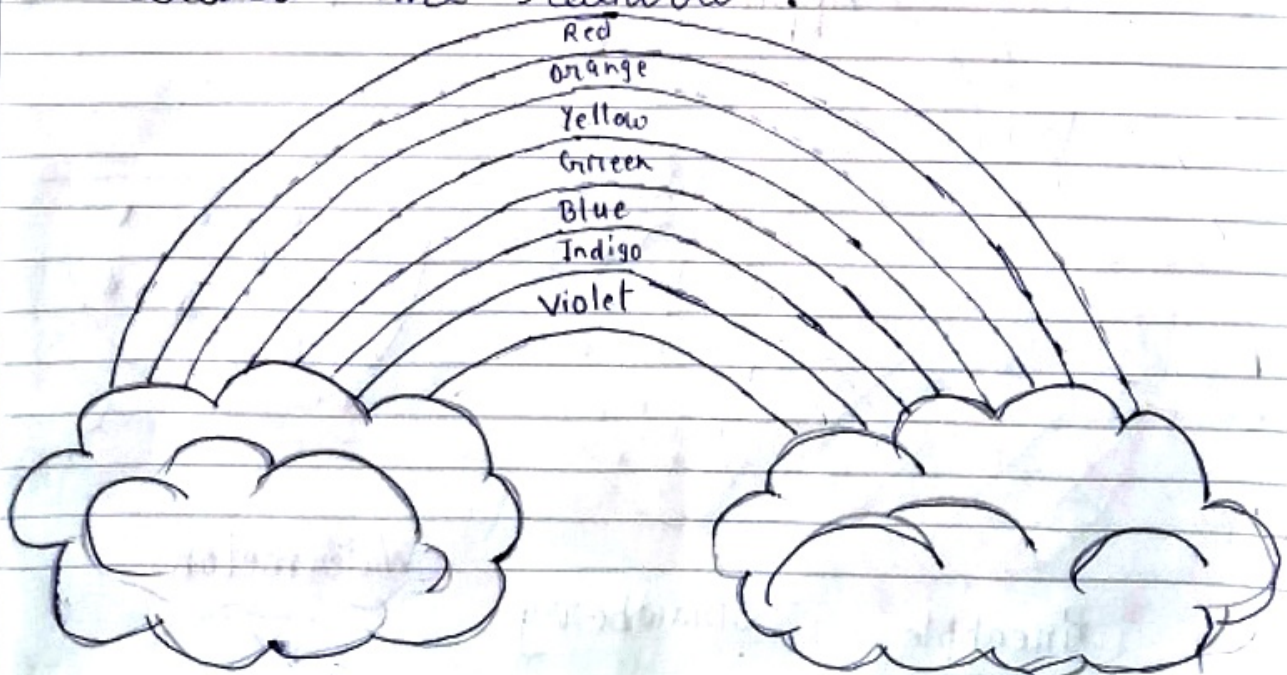 Red
Orange
Yellow
Green
Blue
Indigo
Violet